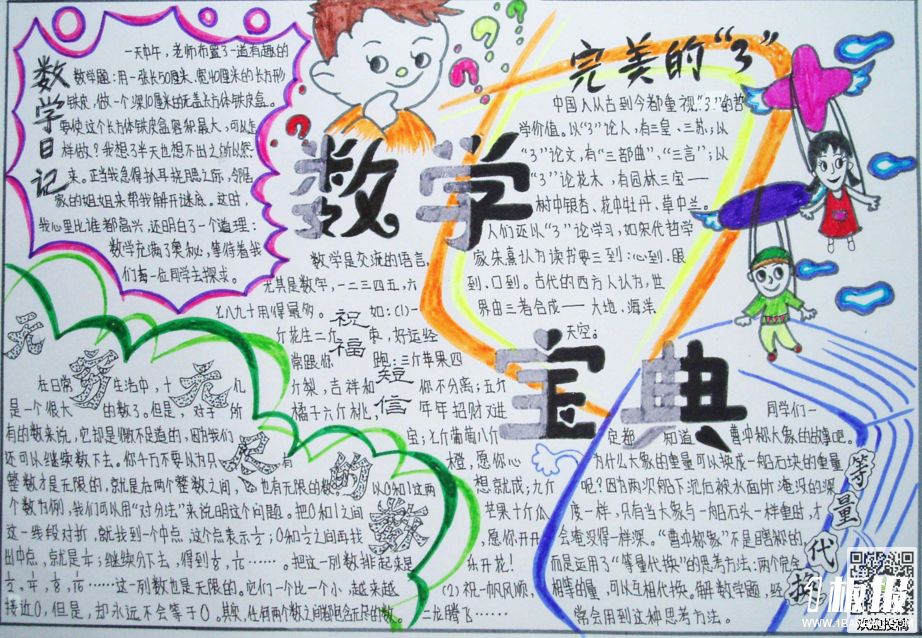 数学日记
一天中午，老师布置了一道有趣的
数学题：用一张长50厘米、宽40厘米的长方形
铁皮，做一个深10厘米的无盖长方体铁皮盒。
要使这个长方体铁皮盒容积最大，可以怎
样做？我想了半天也想不出之所以然
来。正当我急得抓耳挠腮之际，邻居
家的姐姐来帮我解开谜底。这时，
我心里比谁都高兴，还明白了一个道理：
数学充满了奥秘，等待着我
们每一位同学去探求。
数学
宝典
完美的“3”
中国人从古到今都重视“3”的哲
学价值。从“3”论人，有三皇、三苏；从
“3”论文，有“三部曲”、“三言”；从
“3”论花木，有园林三宝——
树中银杏、花中牡丹、草中兰。
人们还从“3”论学习，如宋代哲学
家朱熹认为读书要三到：心到、眼
到、口到。古代的西方人认为，世
界由三者合成——大地、海洋、
天空。
祝福短信
数学是交流的语言，
尤其是数字，一二三四五，六
七八九十用得最多。如：(1)一
斤花生二斤枣，好运经
常跟你跑；三斤苹果四
斤梨，吉祥和你不分离；五斤
橘子六斤桃，年年招财又进
宝；七斤葡萄八斤
橙，愿你心
想就成；九斤
芒果十斤瓜，
愿你开开
乐开花！
(2)祝一帆风顺，
二龙腾飞……
无穷无尽的数
在日常生活中，十几
是一个很大的数了。但是，对于所
有的数来说，它却是微不足道的，因为我们
还可以继续数下去。你千万不要认为只有
整数才是无限的，就是在两个整数之间，也有无限的数。从0和1这两
个数为例，我们可以用“对分法”来说明这个问题。把0和1之间
这一线段对折，就找到一个中点，这个点表示½；0和½之间再找
出中点，就是¼；继续分下去，得到⅛，1/16……。把这一列数排起来是
½，¼，⅛，1/16……这一列数也是无限的。它们一个比一个小，越来越
接近0，但是，却永远不会等于0。其实，任何两个数之间都包含无限的数。
等量代换
同学们一
定都知道曹冲称大象的故事吧。
为什么大象的重量可以换成一船石块的重量
呢？因为两次船下沉后被水面所淹没的深
度一样，只有当大象与一船石头一样重时，才
会淹没得一样深。“曹冲称象”不是瞎称的，
而是运用了“等量代换”的思考方法：两个完全
相等的量，可以互相代换。解数学题，经
常会用到这种思考方法。
1板报
WWW.1BANBAO.COM
欢迎投稿